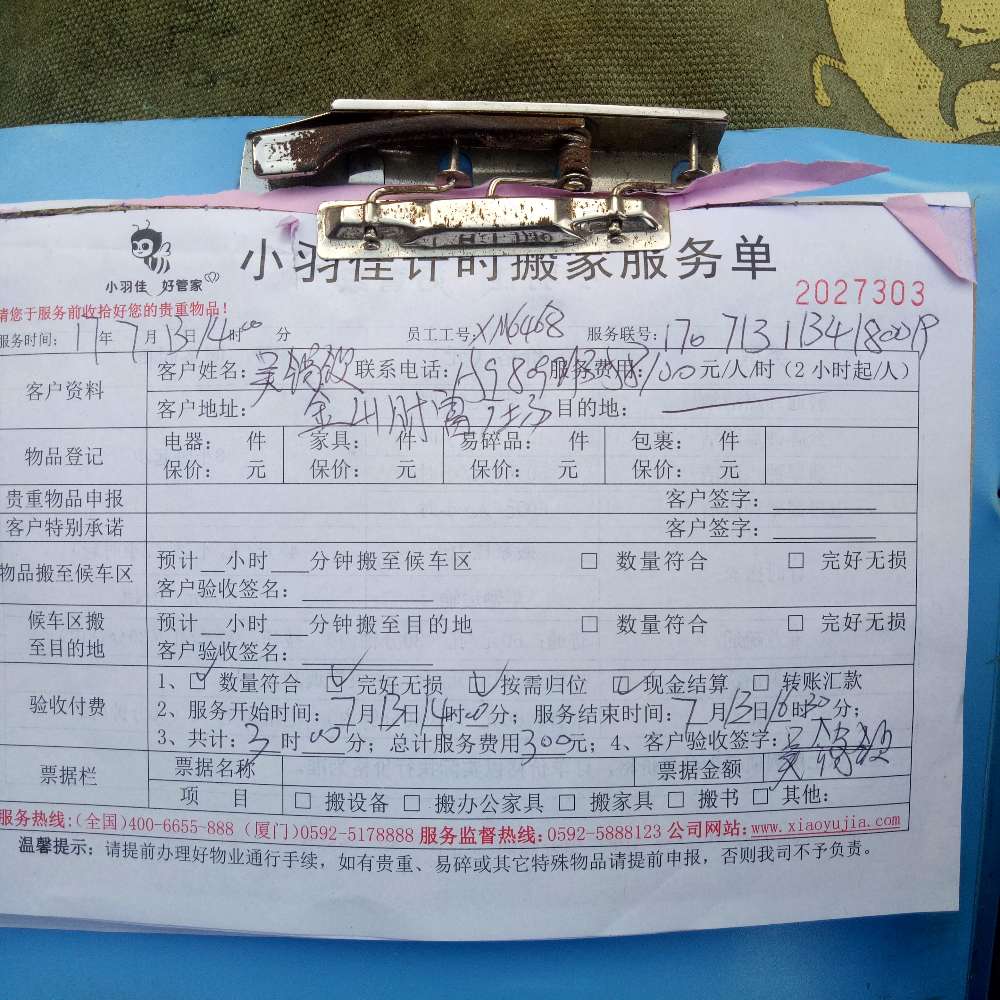 小羽佳计时搬家服务单
小羽佳 好管家
2027303
请您于服务前收拾好您的贵重物品！
服务时间：17年7月13日14时00分 员工工号：XM6468 服务联号：170713113418009
客户资料
客户姓名： 联系电话： 服务费用：100元/人/时（2小时起/人）
客户地址： 目的地：
物品登记
电器： 件 家具： 件 易碎品： 件 包裹： 件
保价： 元 保价： 元 保价： 元 保价： 元
贵重物品申报 客户签字：
客户特别承诺 客户签字：
物品搬至候车区
预计__小时___分钟搬至候车区 □ 数量符合 □ 完好无损
客户验收签名：
候车区搬至目的地
预计__小时___分钟搬至目的地 □ 数量符合 □ 完好无损
客户验收签名：
验收付费
1、☑ 数量符合 ☑ 完好无损 ☑ 按需归位 ☑ 现金结算 □ 转账汇款
2、服务开始时间：7月13日14时00分；服务结束时间：7月13日时30分；
3、共计：3时00分；总计服务费用300元；4、客户验收签字：
票据栏
票据名称 票据金额
项 目 □ 搬设备 □ 搬办公家具 □ 搬家具 □ 搬书 □ 其他：
服务热线：(全国)400-6655-888 (厦门)0592-5178888 服务监督热线：0592-5888123 公司网站：www.xiaoyujia.com
温馨提示：请提前办理好物业通行手续，如有贵重、易碎或其它特殊物品请提前申报，否则我司不予负责。